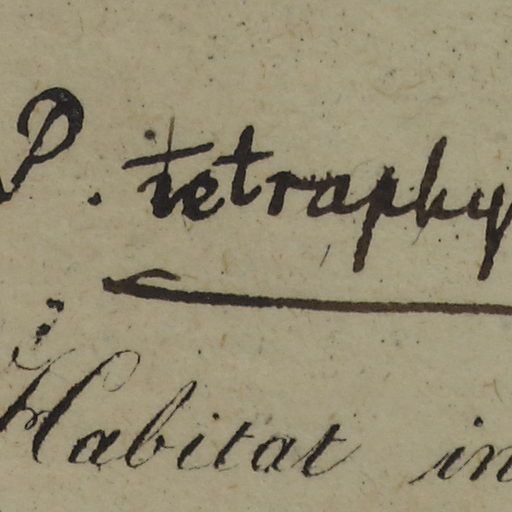 P. tetraphy
Habitat in